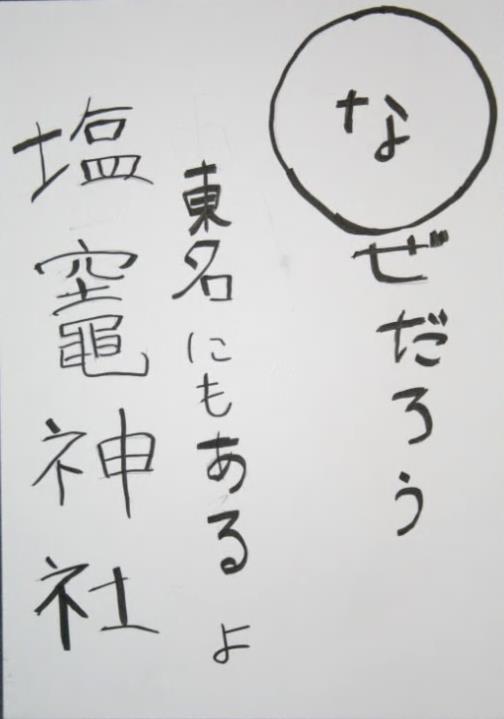 なぜだろう
東名にもあるよ
塩竈神社